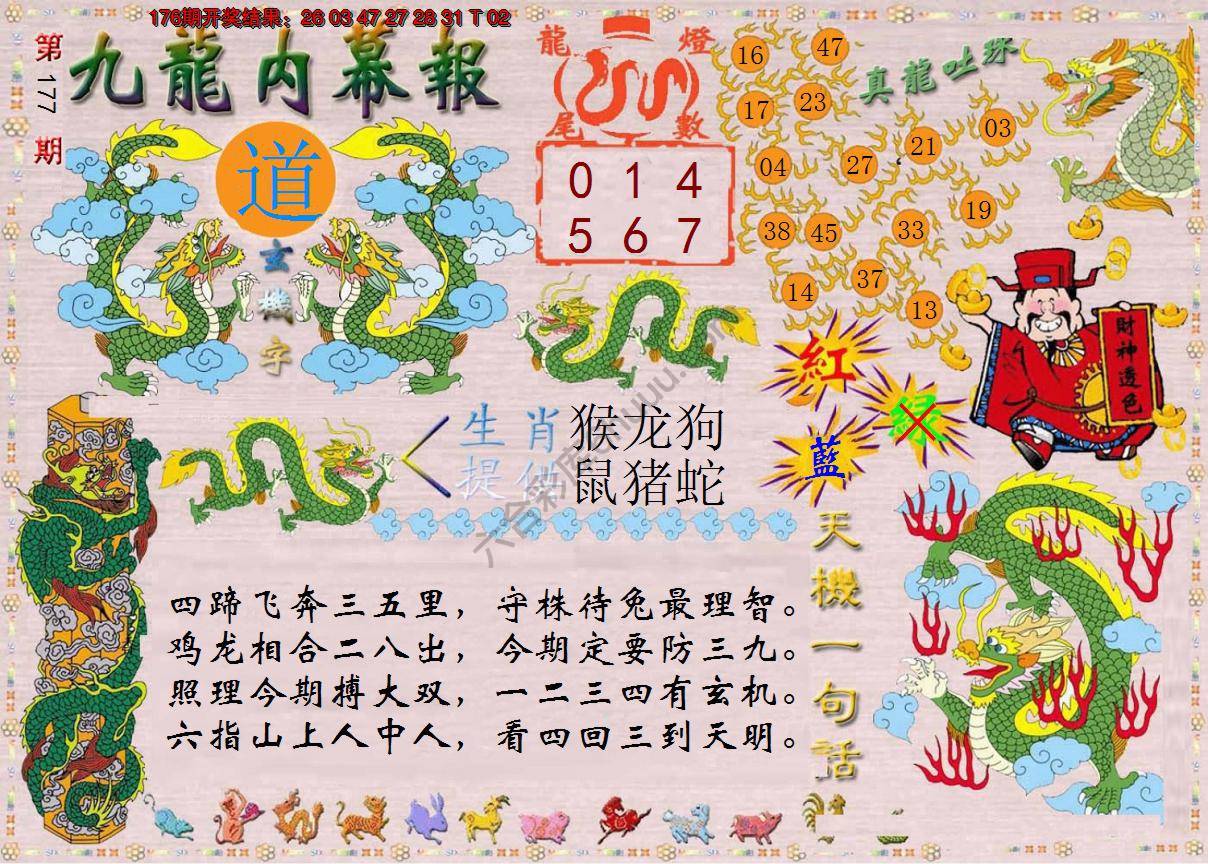 176期开奖结果：26 03 47 27 28 31 T 02
第177期
九龍内幕報
道
玄機字
龍燈
尾數
0 1 4
5 6 7
真龍吐珠
16 47
17 23
04 27 21 03
38 45 33 19
14 37 13
財神透色
紅
绿
藍
生肖
提供
猴龙狗
鼠猪蛇
天機一句話
四蹄飞奔三五里，守株待兔最理智。
鸡龙相合二八出，今期定要防三九。
照理今期搏大双，一二三四有玄机。
六指山上人中人，看四回三到天明。